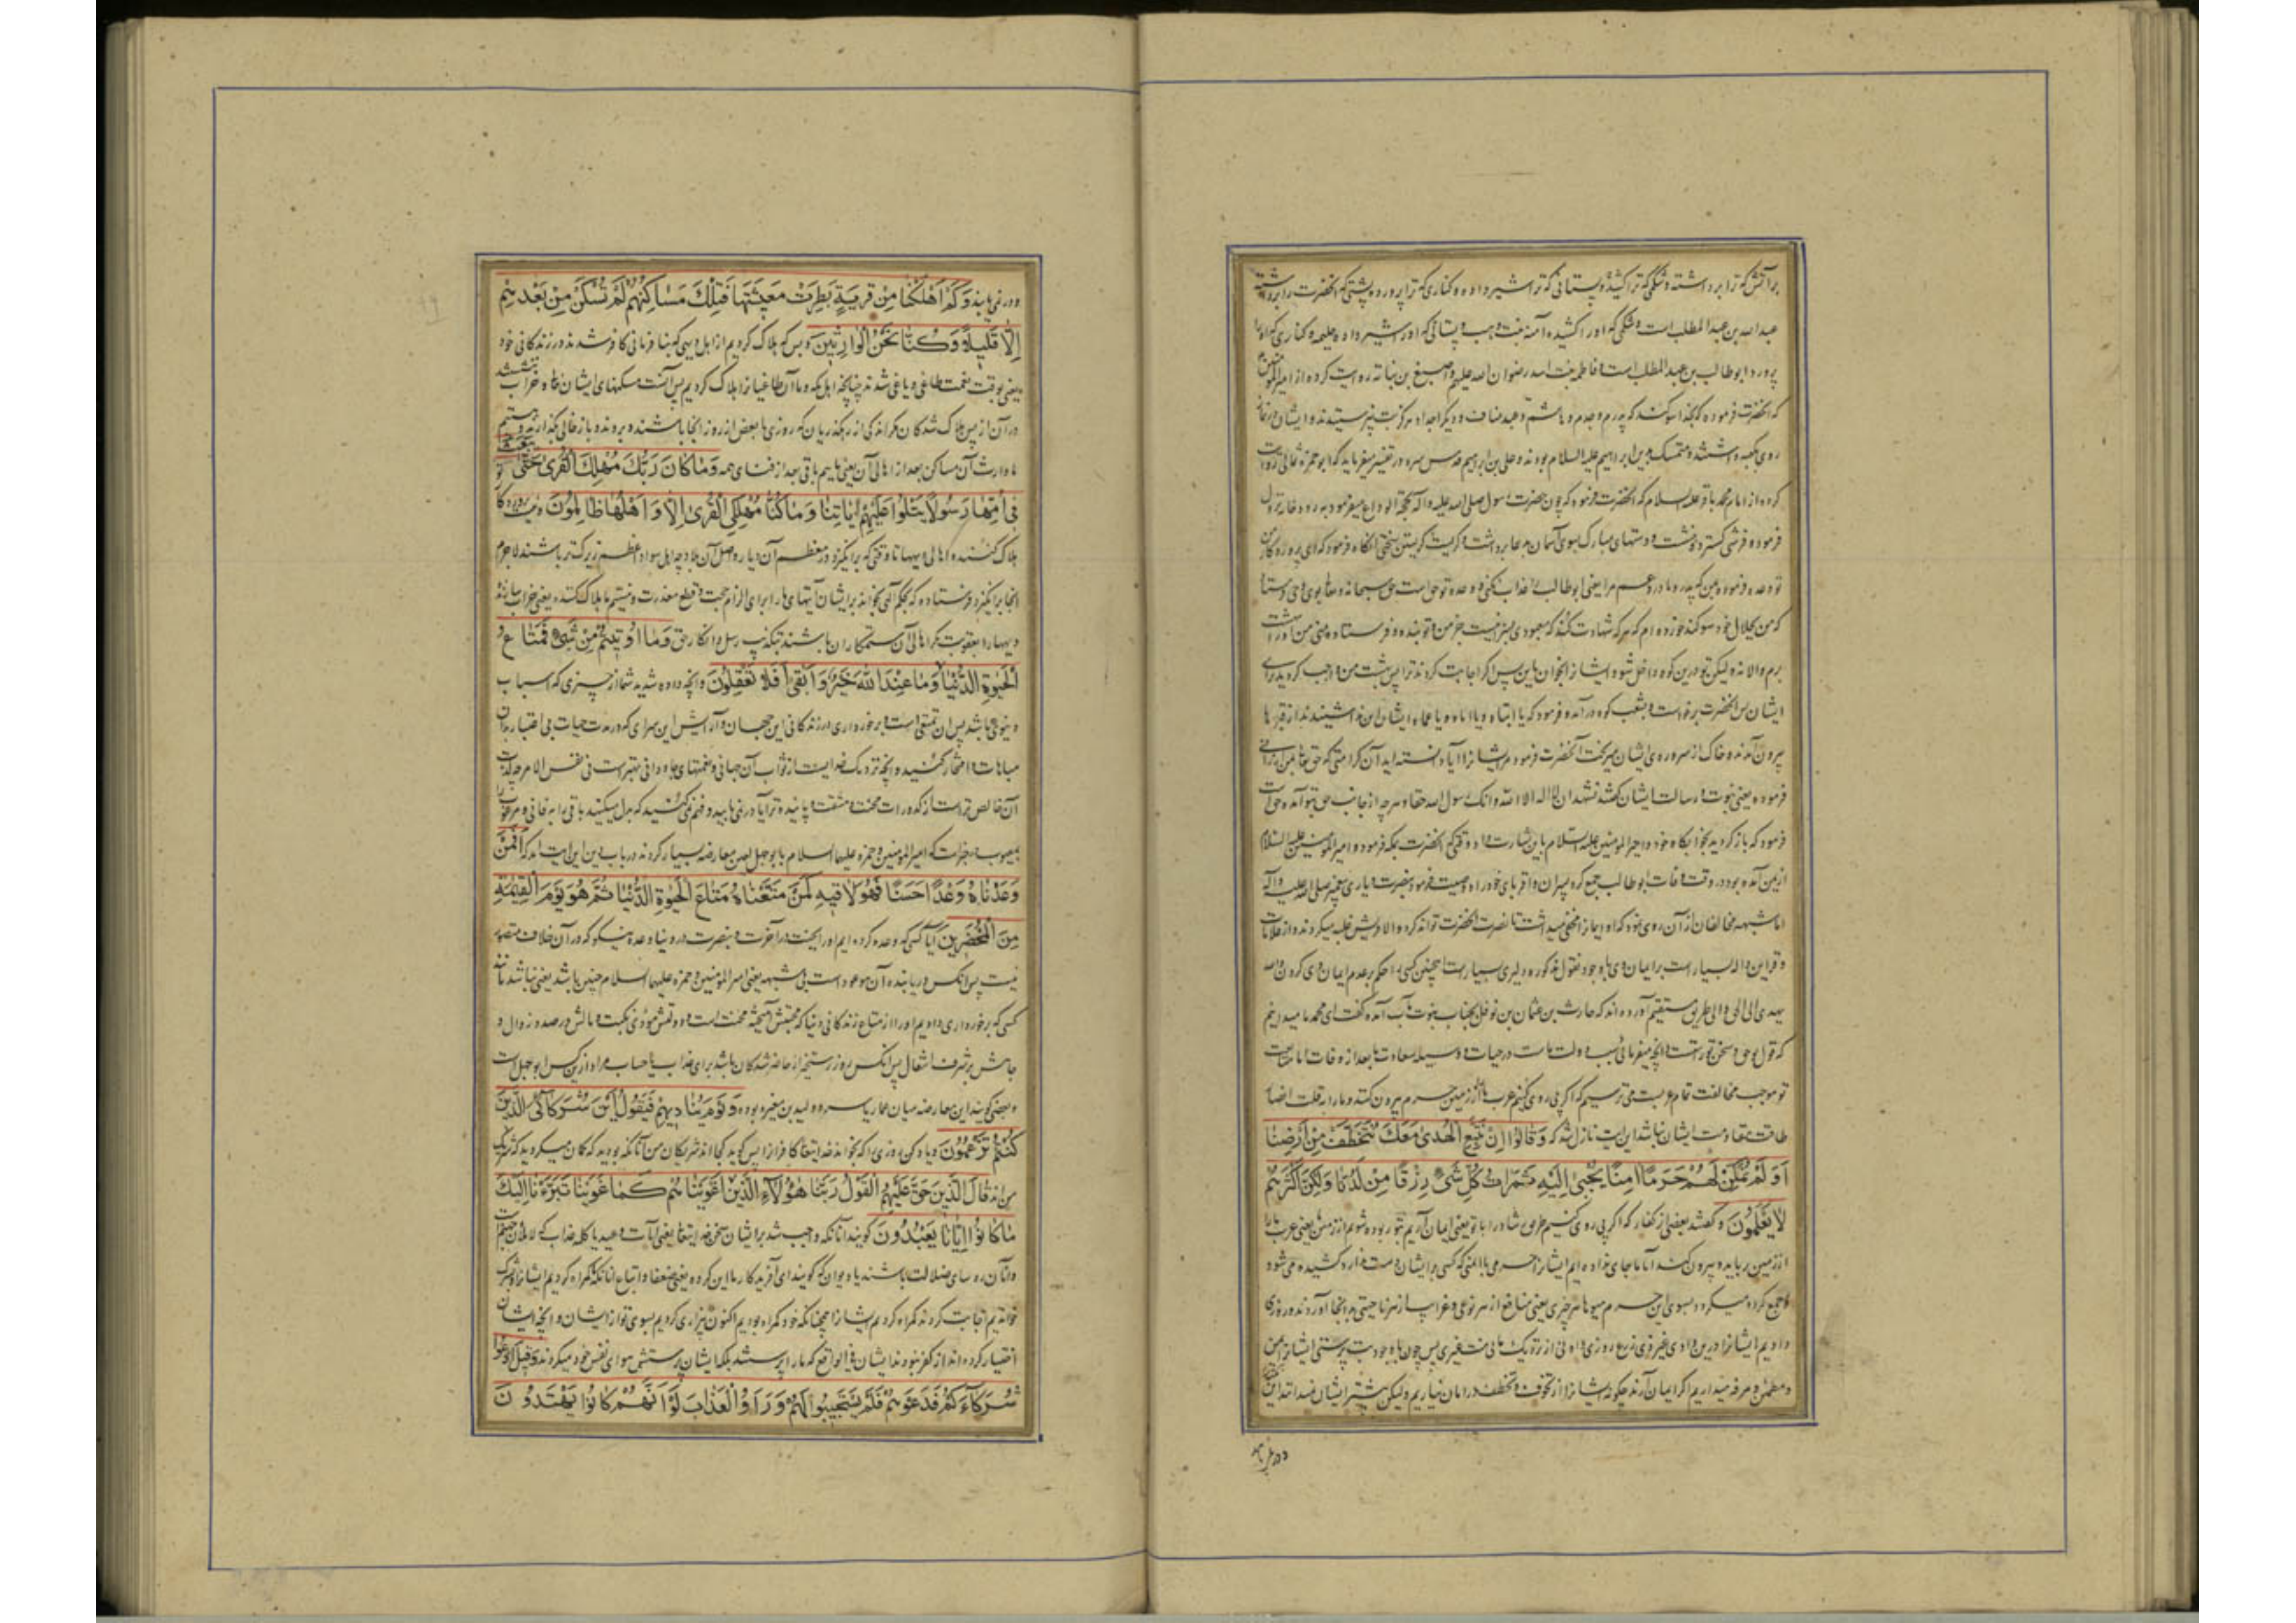 برآتش که ترا برداشته و شکمی که ترا کشیده و پستانی که ترا شیر داده و کناری که ترا پرورد و پشتی که آنحضرت را برداشته
عبدالله بن عبدالمطلب است و شکمی که او را کشیده آمنه بنت وهب و پستانی که او را شیر داده حلیمه و کناری که او را
پرورد ابوطالب بن عبدالمطلب است و فاطمه بنت اسد رضوان الله علیهم و اصبغ بن نباته روایت کرده از امیرالمؤمنین
که آنحضرت فرموده که بخدا سوگند که پدرم و جدم و هاشم و عبد مناف و دیگر اجداد هرگز بت نپرستیدند و ایشان در نماز
روی بکعبه داشتند و متمسک بدین ابراهیم علیه السلام بودند و علی بن ابراهیم قدس سره در تفسیر میفرماید که ابوحمزه ثمالی روایت
کرده از امام محمد باقر علیه السلام که آنحضرت فرموده که چون حضرت رسول صلی الله علیه و آله بحجة الوداع میفرمود
فرمود و فرشی گسترد و نشست و دستهای مبارک بسوی آسمان بدعا برداشت و گریست گریستن سختی آنگاه فرمود که ای پروردگار من
تو وعده فرموده بمن که پدر و مادر و عم مرا یعنی ابوطالب را عذاب نکنی و وعده تو حق است حق سبحانه و تعالی بوی وحی فرستاد
که من بجلال خود سوگند خورده ام که هر که شهادت نکند که معبودی بسزا نیست جز من و تو بنده و فرستاده منی من او را
برم والا نه ولیکن تو درین کوه داخل شو و ایشان را بخوان باین پس اگر اجابت کردند ترا پس بهشت من واجب گردید برای
ایشان پس آنحضرت برخواست و بشعب کوه درآمد و فرمود که یا ابتاه و یا اماه و یا عماه ایشان این ندا شنیدند از قبرها
بیرون آمدند و خاک از سر و روی ایشان میریخت آنحضرت فرمود مر ایشانرا آیا دانسته اید آن کرامتی که حق تعالی بمن ارزانی
فرموده یعنی نبوت و رسالت ایشان گفتند نشهد ان لا اله الا الله وانک رسول الله حقا و هر چه از جانب حق بتو آمده حق است
فرمود که باز گردید بخوابگاه خود و امیرالمؤمنین علیه السلام باین بشارت داد وقتی که آنحضرت بمکه فرمود و امیرالمؤمنین علیه السلام
از یمن آمده بود در وقت وفات ابوطالب جمع کرد پسران و اقربای خود را و وصیت فرمود بنصرت و یاری پیغمبر صلی الله علیه و آله
اما شبهه مخالفان از آن روی بود که او ایمان را مخفی میداشت تا نصرت آنحضرت تواند کرد و الا قریش غلبه میکردند و از علامات
و قراین والد بسیار است بر ایمان وی با وجود نقول مذکوره دلیری بسیار است اینچنین کسی را حکم بر عدم ایمان وی کردن والله
یهدی الی الحق والی طریق مستقیم آورده اند که حارث بن عثمان بن نوفل بجناب نبوت مآب آمده گفت ای محمد ما میدانیم
که قول تو حق و سخن تو راست و آنچه میفرمائی سبب دولت ماست در حیات و وسیله سعادت ما بعد از وفات اما متابعت
تو موجب مخالفت تمام عربست می ترسیم که اگر پی روی کنیم عرب ما را از زمین حرم بیرون کنند و ما را
طاقت مقاومت ایشان نباشد این آیت نازل شد که وَقَالُوا اِنْ نَتَّبِعِ الْهُدٰى مَعَكَ نُتَخَطَّفْ مِنْ اَرْضِنَا
اَوَ لَمْ نُمَكِّنْ لَهُمْ حَرَمًا اٰمِنًا يُجْبٰى اِلَيْهِ ثَمَرَاتُ كُلِّ شَیْءٍ رِزْقًا مِنْ لَدُنَّا وَلٰكِنَّ اَكْثَرَهُمْ
لَا يَعْلَمُونَ و گفتند بعضی از کفار که اگر پی روی کنیم طریق راست را با تو یعنی ایمان آریم بتو ربوده شویم از زمین ما یعنی عرب ما را
از زمین ربایند و بیرون کنند آیا ما جای نداده ایم ایشانرا حرمی با امنی که کسی بر ایشان دست دراز کشیده می شود
و جمع کرده میگردد بسوی این حرم میوهای هر چیزی یعنی منافع از هر نوعی و غرایب از هر ناحیتی به اینجا آورند و روزی
دادیم ایشانرا درین وادی غیر ذی زرع روزی دادنی از نزدیک ما بی منت غیری پس چون با وجود بت پرستی ایشانرا ایمن
و مطمئن و مرفه میداریم اگر ایمان آرند چگونه ایشانرا از تخوف و تخطف در امان نیاریم ولیکن بیشتر ایشان نمیدانند این
ودر نمی یابند
ودر نمی یابند وَكَمْ اَهْلَكْنَا مِنْ قَرْيَةٍ بَطِرَتْ مَعِيشَتَهَا فَتِلْكَ مَسَاكِنُهُمْ لَمْ تُسْكَنْ مِنْ بَعْدِهِمْ
اِلَّا قَلِيلًا وَكُنَّا نَحْنُ الْوَارِثِينَ و بس که هلاک کردیم از اهل دیهی که بنا فرمانی کافر شدند در زندگانی خود
یعنی بوقت نعمت طاغی و یاغی شدند چنانچه اهل مکه و ما آن طاغیانرا هلاک کردیم پس آنست مسکنهای ایشان خراب ننشستند
در آن از پس هلاک شدگان مگر اندکی از رهگذریان که روزی یا بعض از روز آنجا باشند و بروند و باز خالی بگذارند و هستیم
ما وارث آن مساکن بعد از اهالی آن یعنی مائیم باقی بعد از فنای همه وَمَا كَانَ رَبُّكَ مُهْلِكَ الْقُرٰى حَتّٰى يَبْعَثَ
فِى اُمِّهَا رَسُولًا يَتْلُوا عَلَيْهِمْ اٰيَاتِنَا وَمَا كُنَّا مُهْلِكِى الْقُرٰى اِلَّا وَاَهْلُهَا ظَالِمُونَ و نیست پروردگار
هلاک کننده اهالی دیهها تا وقتی که برانگیزد در معظم آن دیار و اصل آن بلاد چه اهل سواد اعظم زیرک تر باشند لاجرم
آنجا برانگیزد فرستاده که بحکم آلهی بخواند بر ایشان آیتهای ما را برای الزام حجت و قطع معذرت و نیستیم ما هلاک کننده یعنی خراب سازنده
دیهها را بعقوبت مگر اهالی آن ستمکاران باشند بتکذیب رسل و انکار حق وَمَا اُوتِيتُمْ مِنْ شَیْءٍ فَمَتَاعُ
الْحَيٰوةِ الدُّنْيَا وَمَا عِنْدَ اللّٰهِ خَيْرٌ وَاَبْقٰى اَفَلَا تَعْقِلُونَ و آنچه داده شدید شما از چیزی که اسباب
دنیوی باشد پس آن تمتعی است و برخورداری در زندگانی این جهان و آرایش این سرای که در مدت حیات بی اعتبار بدان
مباهات و افتخار کنید و آنچه نزدیک خدایست از ثواب آن جهانی و نعمتهای جاودانی بهتر است فی نفس الامر چه لذت
آن خالص تر است از کدورات محنت و مشقت و پاینده تر آیا درنمی یابید و فهم نمی کنید که بدل میکنید باقی را به فانی و مرغوب را
بمعیوب در خبر است که امیرالمؤمنین و حمزه علیهما السلام با ابوجهل لعین معارضه بسیار کردند در باب دین این آیت آمد که اَفَمَنْ
وَعَدْنَاهُ وَعْدًا حَسَنًا فَهُوَ لَاقِيهِ كَمَنْ مَتَّعْنَاهُ مَتَاعَ الْحَيٰوةِ الدُّنْيَا ثُمَّ هُوَ يَوْمَ الْقِيٰمَةِ
مِنَ الْمُحْضَرِينَ آیا کسی که وعده کرده ایم او را بجنت در آخرت و بنصرت در دنیا وعده نیکو که در آن خلاف متصور
نیست پس آنکس دریابنده آن موعود است بی شبهه یعنی امیرالمؤمنین و حمزه علیهما السلام چنین باشد یعنی نباشد مانند
کسی که برخورداری دادیم او را از متاع زندگانی دنیا که محبتش آمیخته محنت است و دولتش مؤدی نکبت و مالش در صدد زوال و
جاهش بر شرف انتقال پس آنکس روز رستخیز از حاضر شدگان باشد برای عذاب یا حساب مراد ازین کس ابوجهل است
و بعضی گویند این معارضه میان عمار یاسر و ولید بن مغیره بوده وَيَوْمَ يُنَادِيهِمْ فَيَقُولُ اَيْنَ شُرَكَائِىَ الَّذِينَ
كُنْتُمْ تَزْعُمُونَ و یاد کن روزی را که بخواند خدایتعالی کافرانرا پس گوید کجا اند شریکان من آنانکه بودید که گمان میکردید که شریک
من اند قَالَ الَّذِينَ حَقَّ عَلَيْهِمُ الْقَوْلُ رَبَّنَا هٰؤُلَاءِ الَّذِينَ اَغْوَيْنَا اَغْوَيْنَاهُمْ كَمَا غَوَيْنَا تَبَرَّاْنَا اِلَيْكَ
مَا كَانُوا اِيَّانَا يَعْبُدُونَ گویند آنانکه واجب شد بر ایشان سخن خدایتعالی یعنی آیات وعید یا کلمه عذاب که لاملان جهنم است
و آنان رؤسای ضلالت باشند یا دیوان که گویند ای آفریدگار ما این گروه یعنی ضعفا و اتباع آنانند که گمراه کردیم ایشانرا و بشرک
خواندیم اجابت کردند گمراه کردیم ایشانرا همچنانکه خود گمراه بودیم اکنون بیزاری کردیم بسوی تو از ایشان و آنچه ایشان
اختیار کرده اند از کفر نبودند ایشان فی الواقع که ما را پرستند بلکه ایشان پرستش هوای نفس خود میکردند وَقِيلَ ادْعُوا
شُرَكَاءَكُمْ فَدَعَوْهُمْ فَلَمْ يَسْتَجِيبُوا لَهُمْ وَرَاَوُا الْعَذَابَ لَوْ اَنَّهُمْ كَانُوا يَهْتَدُونَ